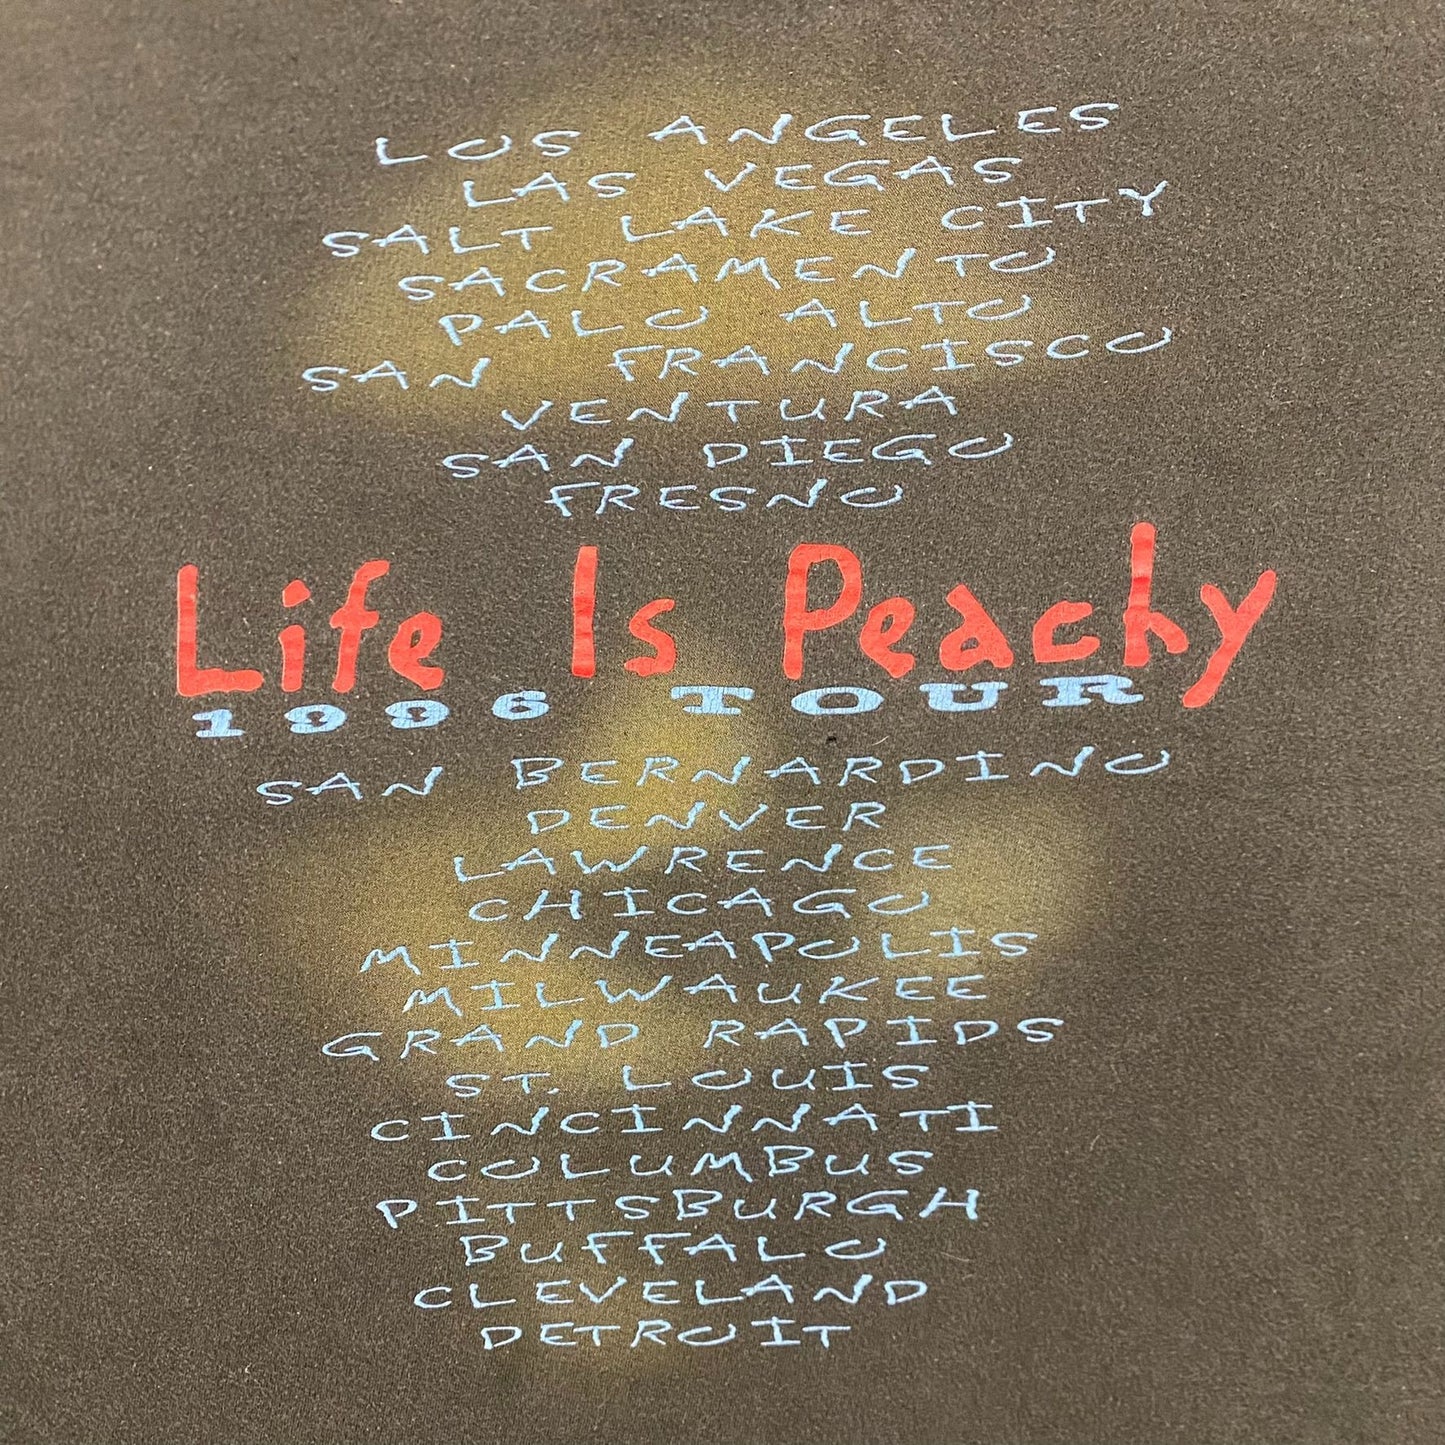 LOS ANGELES
LAS VEGAS
SALT LAKE CITY
SACRAMENTO
PALO ALTO
SAN FRANCISCO
VENTURA
SAN DIEGO
FRESNO
Life Is Peachy
1996 TOUR
SAN BERNARDINO
DENVER
LAWRENCE
CHICAGO
MINNEAPOLIS
MILWAUKEE
GRAND RAPIDS
ST. LOUIS
CINCINNATI
COLUMBUS
PITTSBURGH
BUFFALO
CLEVELAND
DETROIT